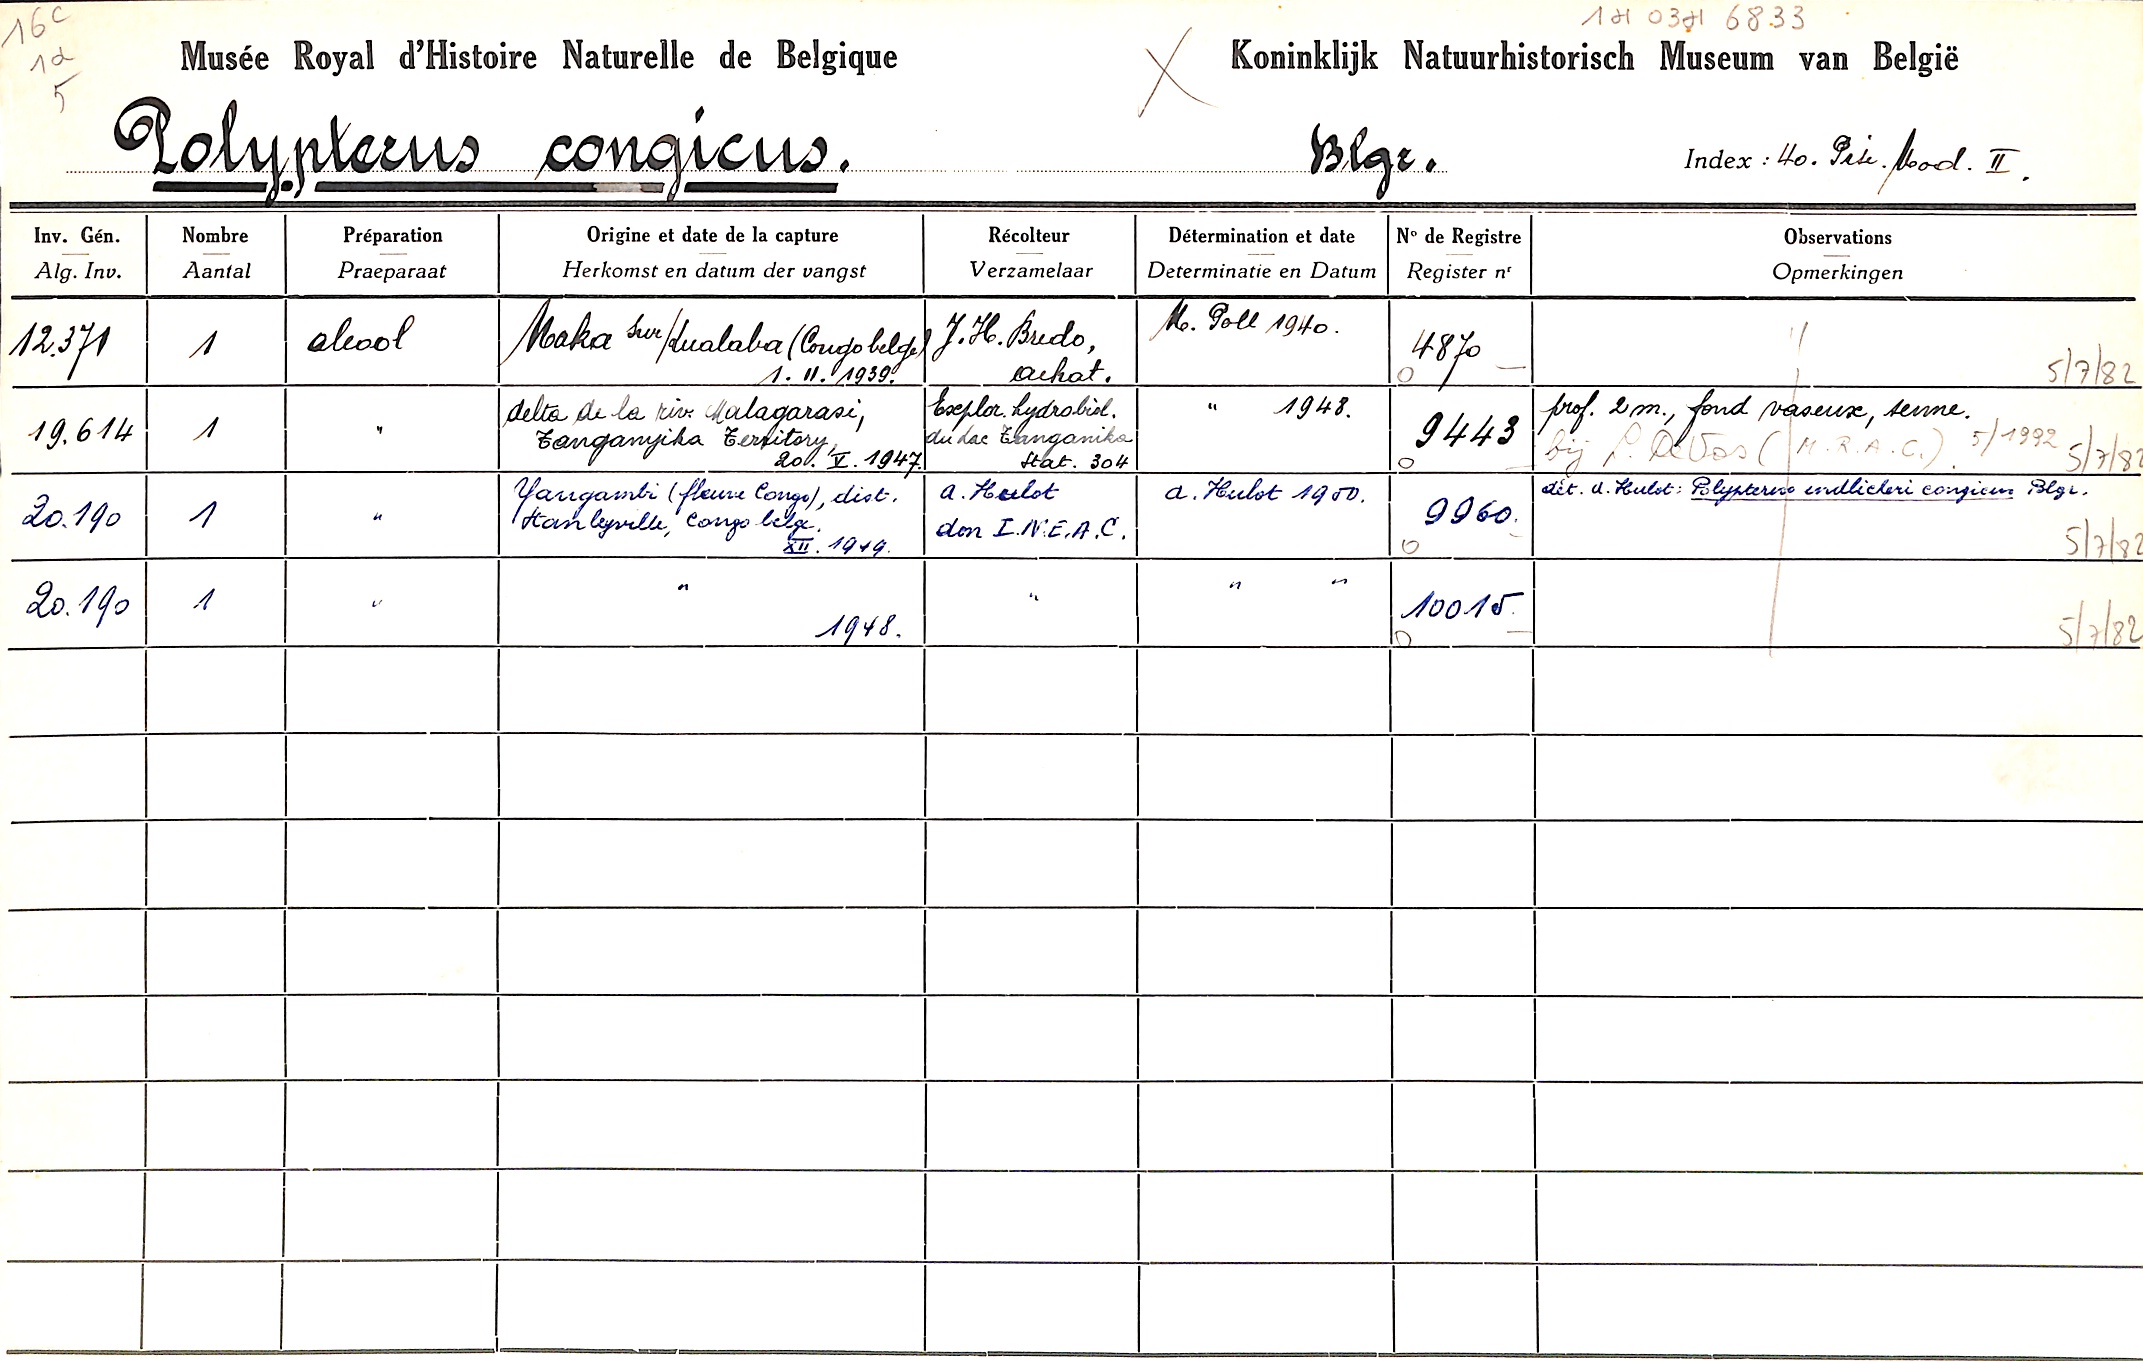 16c
1d
5
6833
Musée Royal d'Histoire Naturelle de Belgique
Koninklijk Natuurhistorisch Museum van België
Polypterus congicus. Blgr. Index : 40. Pisc. Mod. II.
Inv. Gén. Nombre Préparation Origine et date de la capture Récolteur Détermination et date N° de Registre Observations
Alg. Inv. Aantal Praeparaat Herkomst en datum der vangst Verzamelaar Determinatie en Datum Register nr Opmerkingen
12.371 1 alcool Maka sur/Lualaba (Congo belge) J. H. Bredo, M. Poll 1940. 4870
1. II. 1939. achat. 5/7/82
19.614 1 " delta de la riv. Malagarasi, Explor. hydrobiol. " 1948. 9443 prof. 2 m., fond vaseux, senne.
Tanganyika Territory, du Lac Tanganika bij L. De Vos (M.R.A.C.). 5/1992
20. V. 1947. Stat. 304 5/7/82
20.190 1 " Yangambi (fleuve Congo), dist. A. Hulot A. Hulot 1950. 9960. dét. A. Hulot: Polypterus endlicheri congicus Blgr.
Stanleyville, Congo belge. don I.N.E.A.C.
XII. 1949. 5/7/82
20.190 1 " " " " " 10015.
1948. 5/7/82